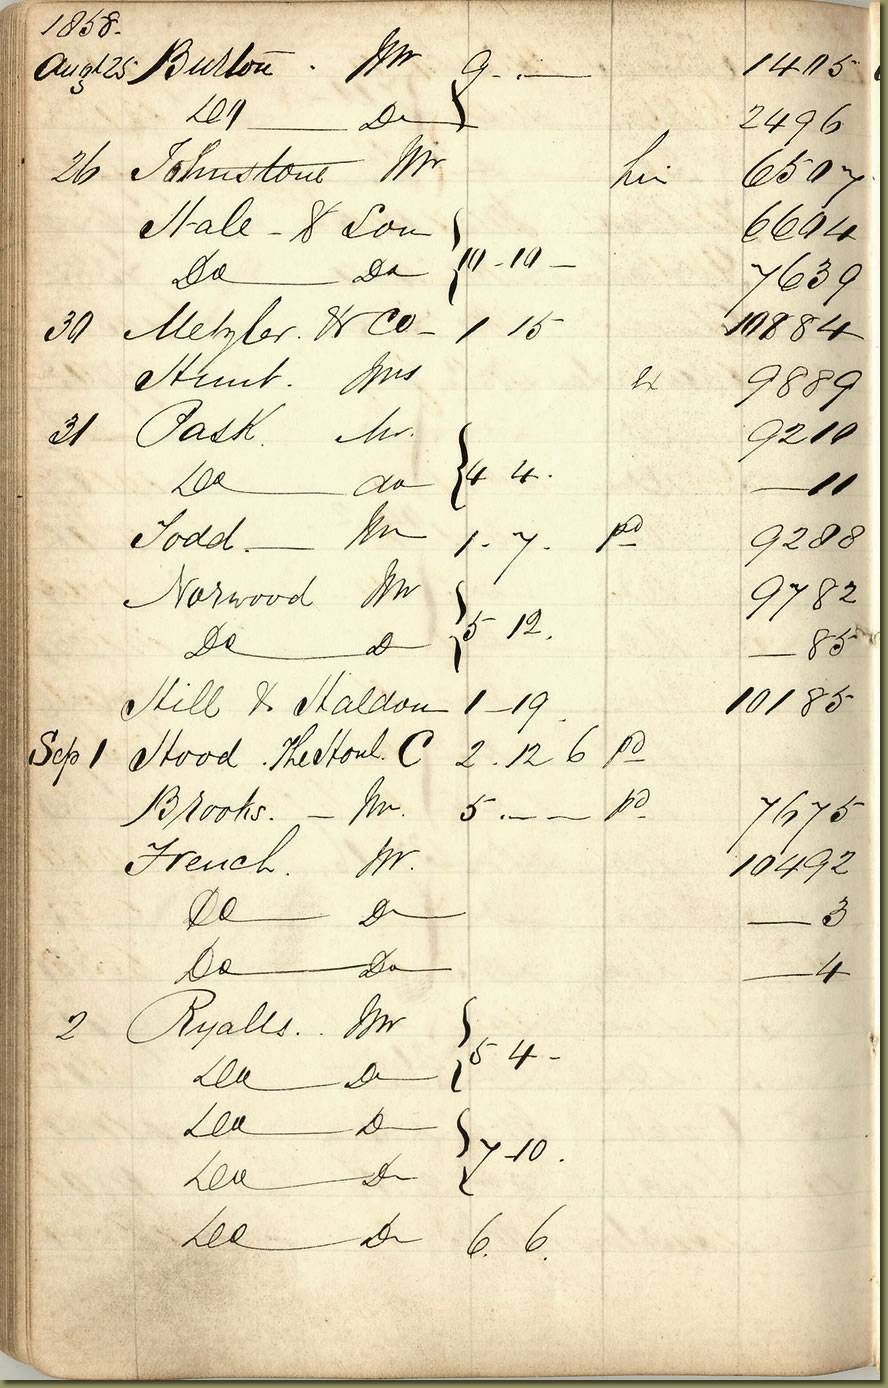 1858.
Augt 25 Burton . Mr 9 . — 1405
Do Do 2496
26 Johnstone Mr 6507
Hale - & Son 6604
Do Do 10 - 10 - 7639
30 Metzler. & Co - 1 15 10884
Hunt. Mrs 9889
31 Pask. Mr. 9210
Do do 4 4. — 11
Todd. — Mr 1. 7. pd 9288
Norwood Mr 9782
Do D 5 12. — 85
Hill & Haldon 1 - 19. 10185
Sep 1 Hood . The Honl. C 2 . 12 6 pd
Brooks. — Mr. 5 . — — pd 7675
French. Mr. 10492
Do Do — 3
Do Do — 4
2 Ryalls. . Mr
Do Do 5 4 -
Do Do
Do Do 7 - 10 .
Do Do 6. 6.